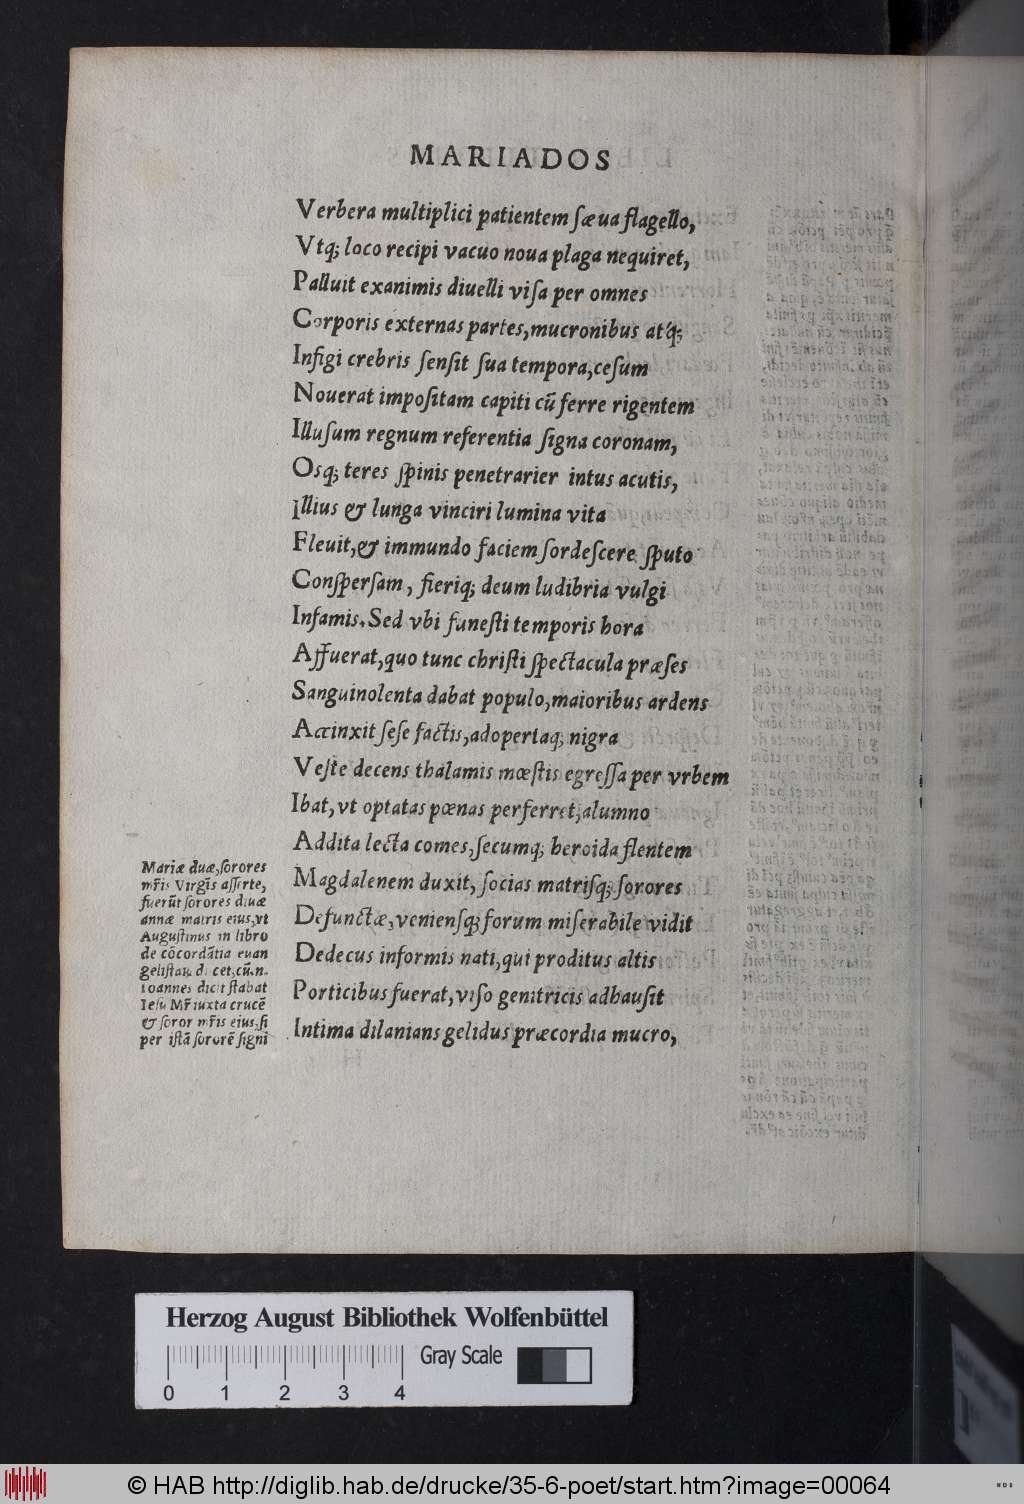 MARIADOS
Verbera multiplici patientem ſæua flagello,
Vtq; loco recipi vacuo noua plaga nequiret,
Palluit exanimis diuelli viſa per omnes
Corporis externas partes, mucronibus atq́;
Infigi crebris ſenſit ſua tempora, ceſum
Nouerat impoſitam capiti cū ferre rigentem
Illuſum regnum referentia ſigna coronam,
Osq; teres ſpinis penetrarier intus acutis,
Illius & lunga vinciri lumina vita
Fleuit, & immundo faciem ſordeſcere ſputo
Conſperſam, fieriq; deum ludibria vulgi
Infamis. Sed vbi funeſti temporis hora
Affuerat, quo tunc chriſti ſpectacula præſes
Sanguinolenta dabat populo, maioribus ardens
Accinxit ſeſe factis, adopertaq; nigra
Veſte decens thalamis mœſtis egreſſa per vrbem
Ibat, vt optatas pœnas perferret, alumno
Addita lecta comes, ſecumq; heroida flentem
Magdalenem duxit, ſocias matriſq; ſorores
Defunctæ, venienſq; forum miſerabile vidit
Dedecus informis nati, qui proditus altis
Porticibus fuerat, viſo genitricis adhauſit
Intima dilanians gelidus præcordia mucro,
Mariæ duæ, ſorores
mr̄is Virgīs aſſerte,
fuerūt ſorores diuæ
annæ matris eius, vt
Auguſtinus in libro
de cōcordātia euan
geliſtaꝝ dicet, cū.n.
Ioannes dicit ſtabat
Ieſu Mr̄ iuxta crucē
& ſoror mr̄is eius, ſi
per iſtā ſororē ſigni
Herzog August Bibliothek Wolfenbüttel
Gray Scale
0 1 2 3 4
© HAB http://diglib.hab.de/drucke/35-6-poet/start.htm?image=00064